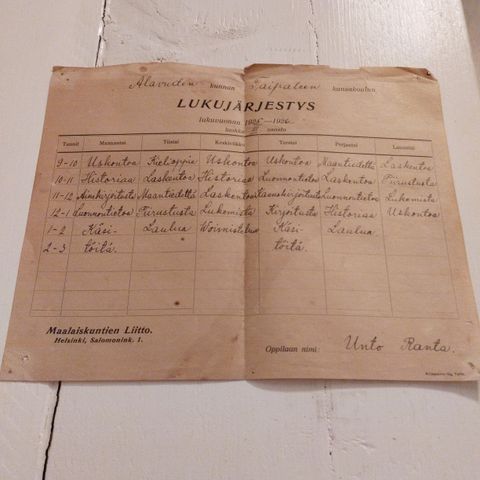 Alavuden kunnan Taipaleen kansakoulun
LUKUJÄRJESTYS
lukuvuonna 1925—1926
Tunnit Maanantai Tiistai Keskiviikko Torstai Perjantai Lauantai
9-10 Uskontoa Kielioppia Uskontoa Uskontoa Maantiedettä Laskentoa
10-11 Historiaa Laskentoa Historiaa Luonnontietoa Laskentoa Piirustusta
11-12 Ainekirjoitusta Maantiedettä Laskentoa Luonnontietoa Lukemista
12-1 Luonnontietoa Piirustusta Lukemista Kirjoitusta Historiaa Uskontoa
1-2 Käsi- Laulua Voimistelua Käsi- Laulua
2-3 töitä. töitä.
Maalaiskuntien Liitto.
Helsinki, Salomonink. 1.
Oppilaan nimi: Unto Ranta.